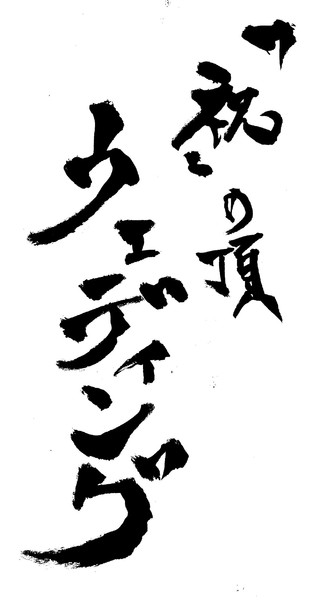 〝祝〟の頂
ウェディング